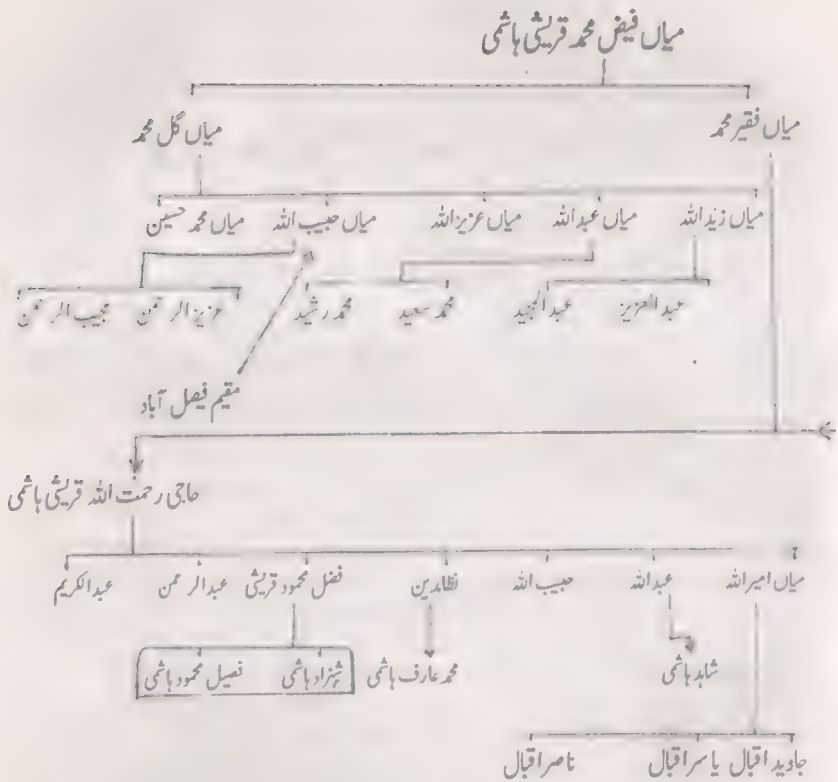 میاں فیض محمد قریشی ہاشمی
میاں فقیر محمد میاں گل محمد
میاں زید اللہ میاں عبداللہ میاں عزیز اللہ میاں حبیب اللہ میاں محمد حسین
عبدالعزیز عبدالمجید محمد سعید محمد رشید عزیز الرحمن مجیب الرحمن
مقیم فیصل آباد
حاجی رحمت اللہ قریشی ہاشمی
میاں امیر اللہ عبداللہ حبیب اللہ نظامدین فضل محمود قریشی عبدالرحمن عبدالکریم
شاہد ہاشمی محمد عارف ہاشمی شہزاد ہاشمی فصیل محمود ہاشمی
جاوید اقبال یاسر اقبال ناصر اقبال